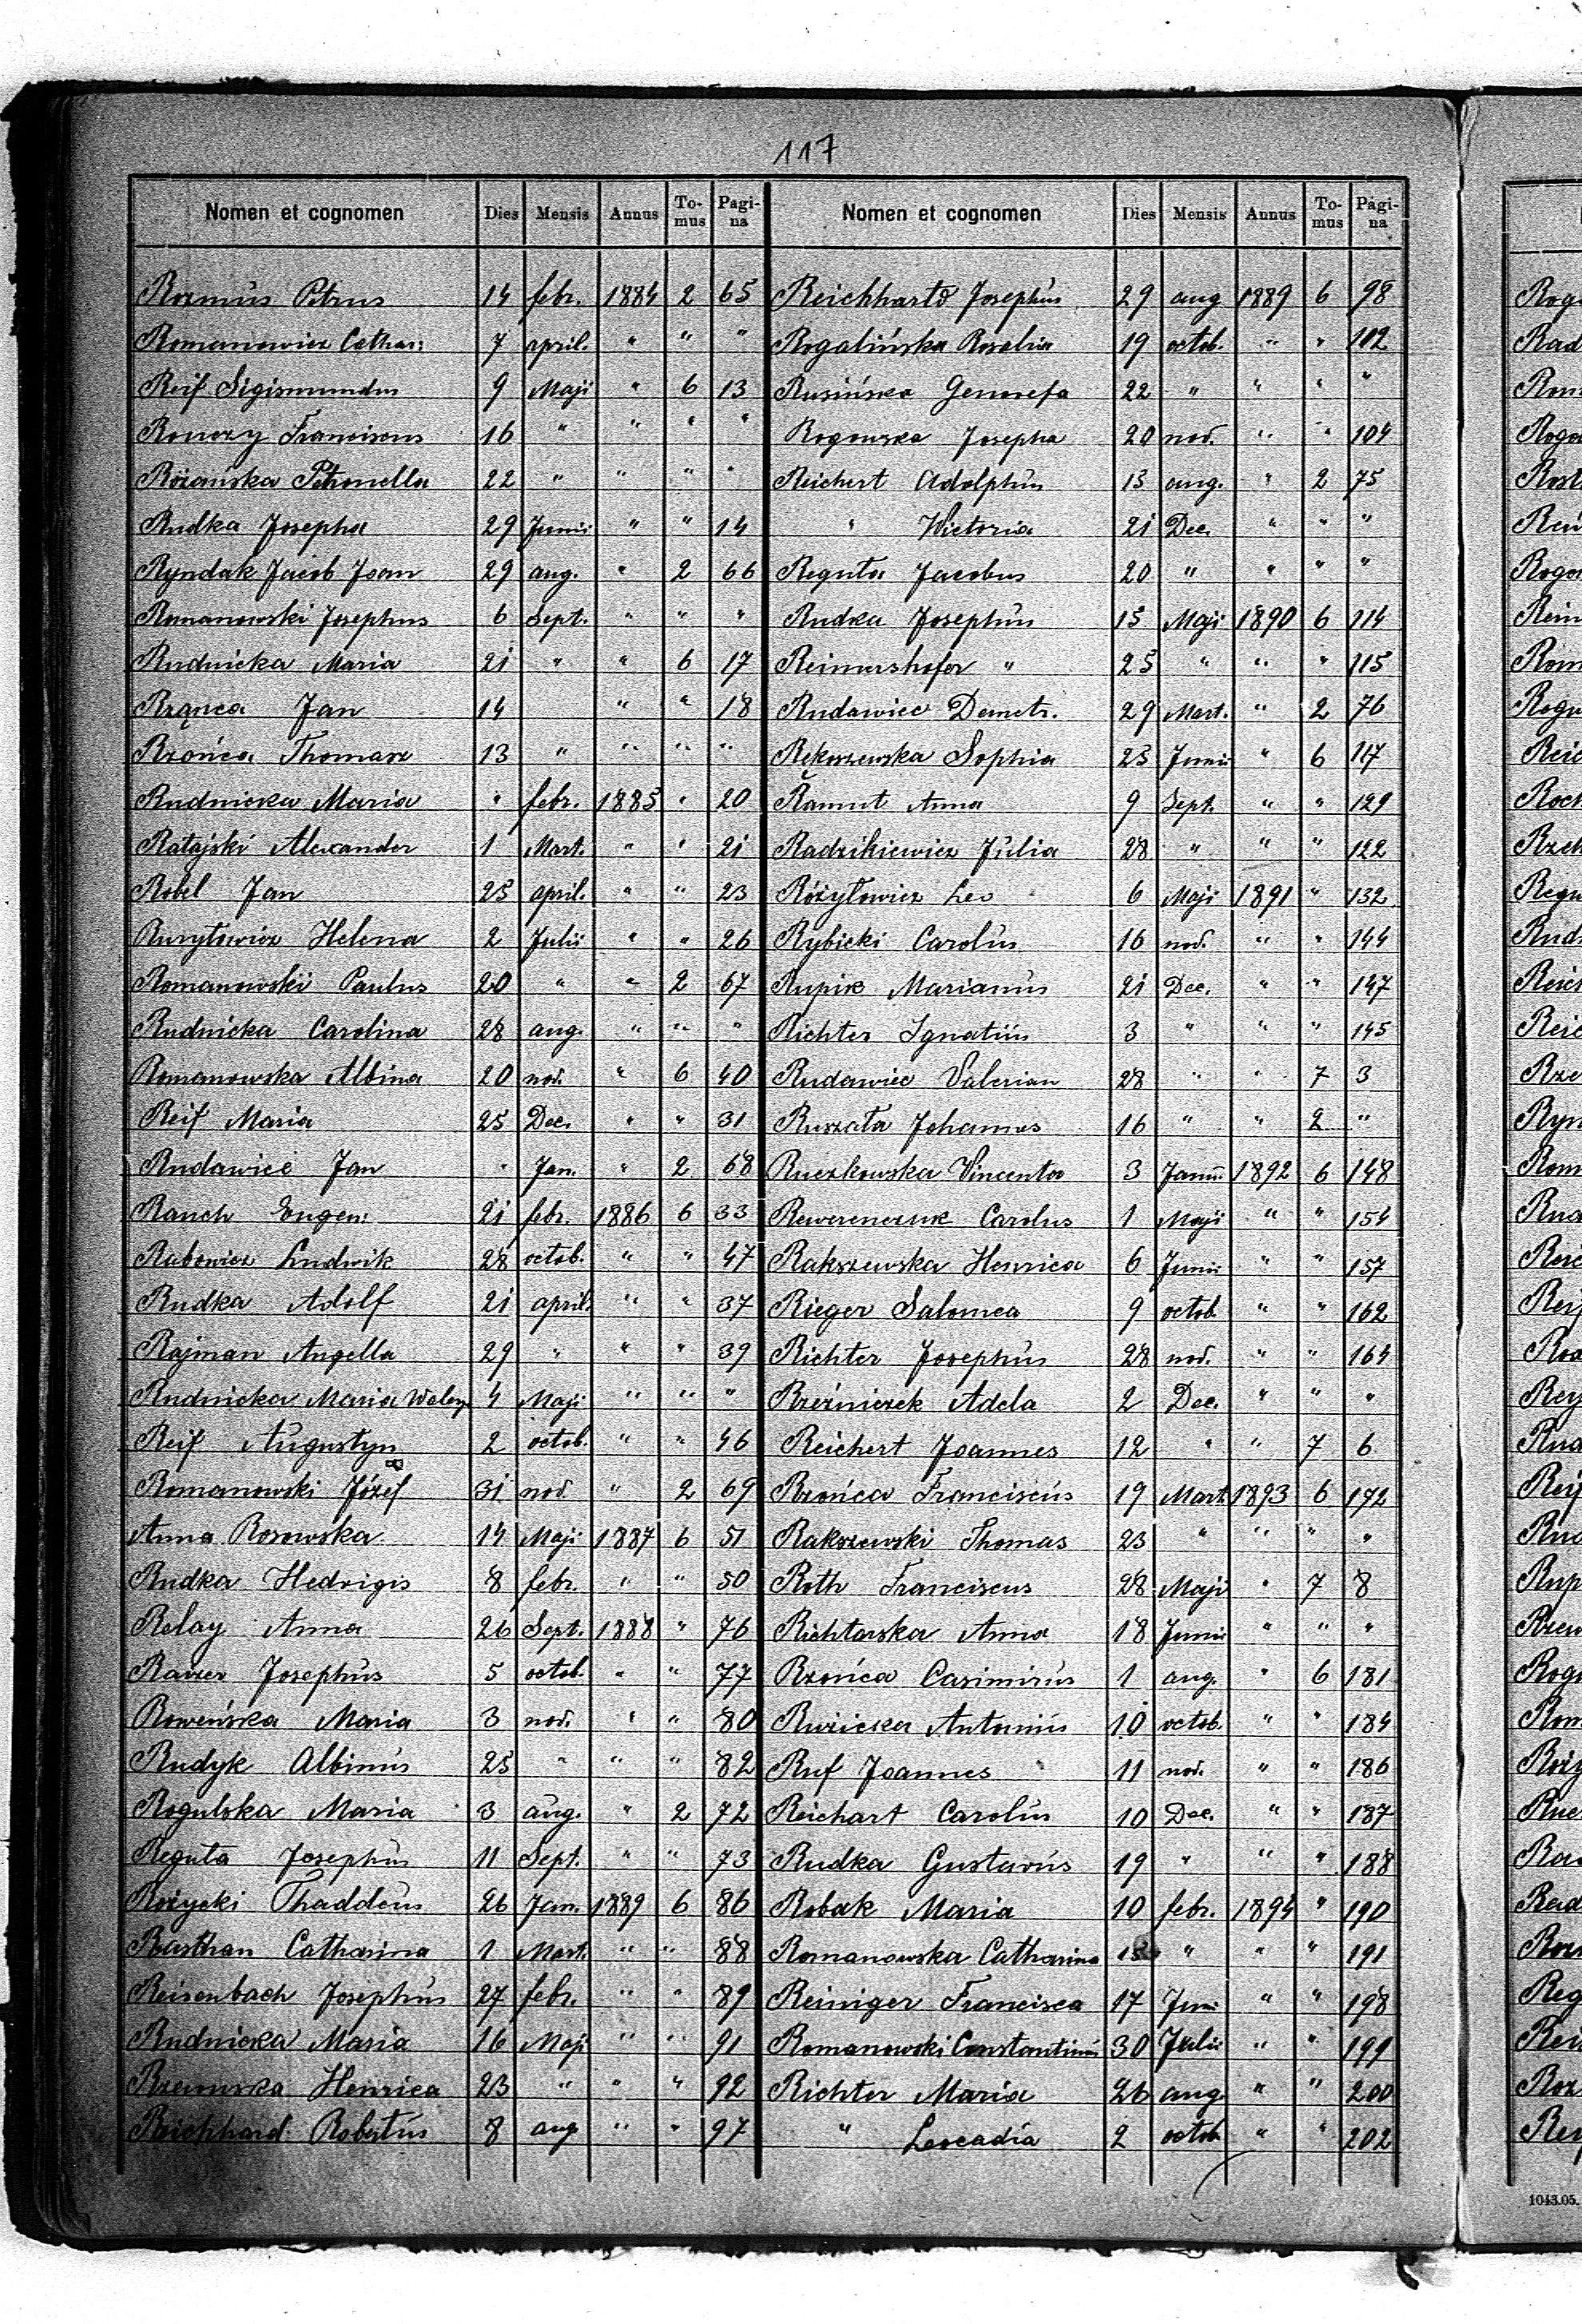 117
Nomen et cognomen Dies Mensis Annus To-mus Pagi-na
Rozmus Petrus 14 febr. 1884 2 65
Romanowicz Cathar: 7 april. " " "
Reif Sigismundus 9 Maji " 6 13
Franciscus 16 " " " "
Różańska Petronella 22 " " " "
Rudka Josepha 29 Junii " " 14
Ryndak Jacob Joan 29 aug. " 2 66
Romanowski Josephus 6 Sept. " " "
Rudnicka Maria 21 " " 6 17
Rząnca Jan 14 " " 18
Rzońca Thomasz 13 " " " "
Rudnicka Maria " febr. 1885 " 20
Ratajski Alexander 1 Mart. " " 21
Robel Jan 25 april. " " 23
Rurytowicz Helena 2 Julii " " 26
Romanowski Paulus 20 " " 2 67
Rudnicka Carolina 28 aug. " " "
Romanowska Albina 20 nov. " 6 40
Reif Maria 25 Dec. " " 31
Rudawiec Jan " Jan. " 2 68
Rauch Eugen: 21 febr. 1886 6 33
Rabowicz Ludwik 28 octob. " " 47
Rudka Adolf 21 april. " " 37
Rajman Angella 29 " " " 39
Rudnicka Maria Waler. 4 Maji " " "
Reif Augustyn 2 octob. " " 46
Romanowski Józef 31 nov. " 2 69
Anna Rosowska 14 Maji 1887 6 51
Rudka Hedvigis 8 febr. " " 50
Relay Anna 26 Sept. 1888 " 76
Josephus 5 octob. " " 77
Roweńska Maria 3 nov. " " 80
Rudyk Albinus 25 " " " 82
Rogulska Maria 3 aug. " 2 72
Reguta Josephus 11 Sept. " " 73
Rożycki Thaddeus 26 Jan. 1889 6 86
Catharina 1 Mart. " " 88
Reisenbach Josephus 27 febr. " " 89
Rudnicka Maria 16 Maji " " 91
Henrica 23 " " " 92
Reichhard Robertus 8 aug " " 97
Nomen et cognomen Dies Mensis Annus To-mus Pagi-na
Reichhard Josephus 29 aug 1889 6 98
Rogalińska Rosalia 19 octob. " " 102
Rusińska Genovefa 22 " " " "
Rogowska Josepha 20 nov. " " 104
Reichert Adolphus 13 aug. " 2 75
" Wictoria 21 Dec. " " "
Reguta Jacobus 20 " " " "
Rudka Josephus 15 Maji 1890 6 114
Reimershofer " 25 " " " 115
Rudawiec Demetr. 29 Mart. " 2 76
Rekoszewska Sophia 23 Junii " 6 117
Řamut Anna 9 Sept. " " 129
Radzikiewicz Julia 28 " " " 122
Różyłowicz Leo 6 Maji 1891 " 132
Rybicki Carolus 16 nov. " " 144
Rupik Marianus 21 Dec. " " 147
Richter Ignatius 3 " " " 145
Rudawiec Valerian 28 " " 7 3
Ruszała Johannes 16 " " 2 "
Ruczkowska Vincenta 3 1892 6 148
Rewerenczuk Carolus 1 Maji " " 154
Rakszewska Henrica 6 Junii " " 157
Rieger Salomea 9 octob " " 162
Richter Josephus 28 nov. " " 164
Rzeźniczek Adela 2 Dec. " " "
Reichert Joannes 12 " " 7 6
Rzońca Franciscus 19 Mart 1893 6 172
Rakszewski Thomas 23 " " " "
Roth Franciscus 28 Maji " 7 8
Richtarska Anna 18 Junii " " "
Rzońca Casimirus 1 aug. " 6 181
Ružicka Antonius 10 octob. " " 184
Ruf Joannes 11 nov. " " 186
Reichart Carolus 10 Dec. " " 187
Rudka Gustavus 19 " " " 188
Robak Maria 10 febr. 1894 " 190
Romanowska Catharina 15 " " " 191
Reiniger Francisca 17 Juni " " 198
Romanowski Constantinus 30 Julii " " 199
Richter Maria 26 aug. " " 200
" Leocadia 2 octob " " 202
1043.05.